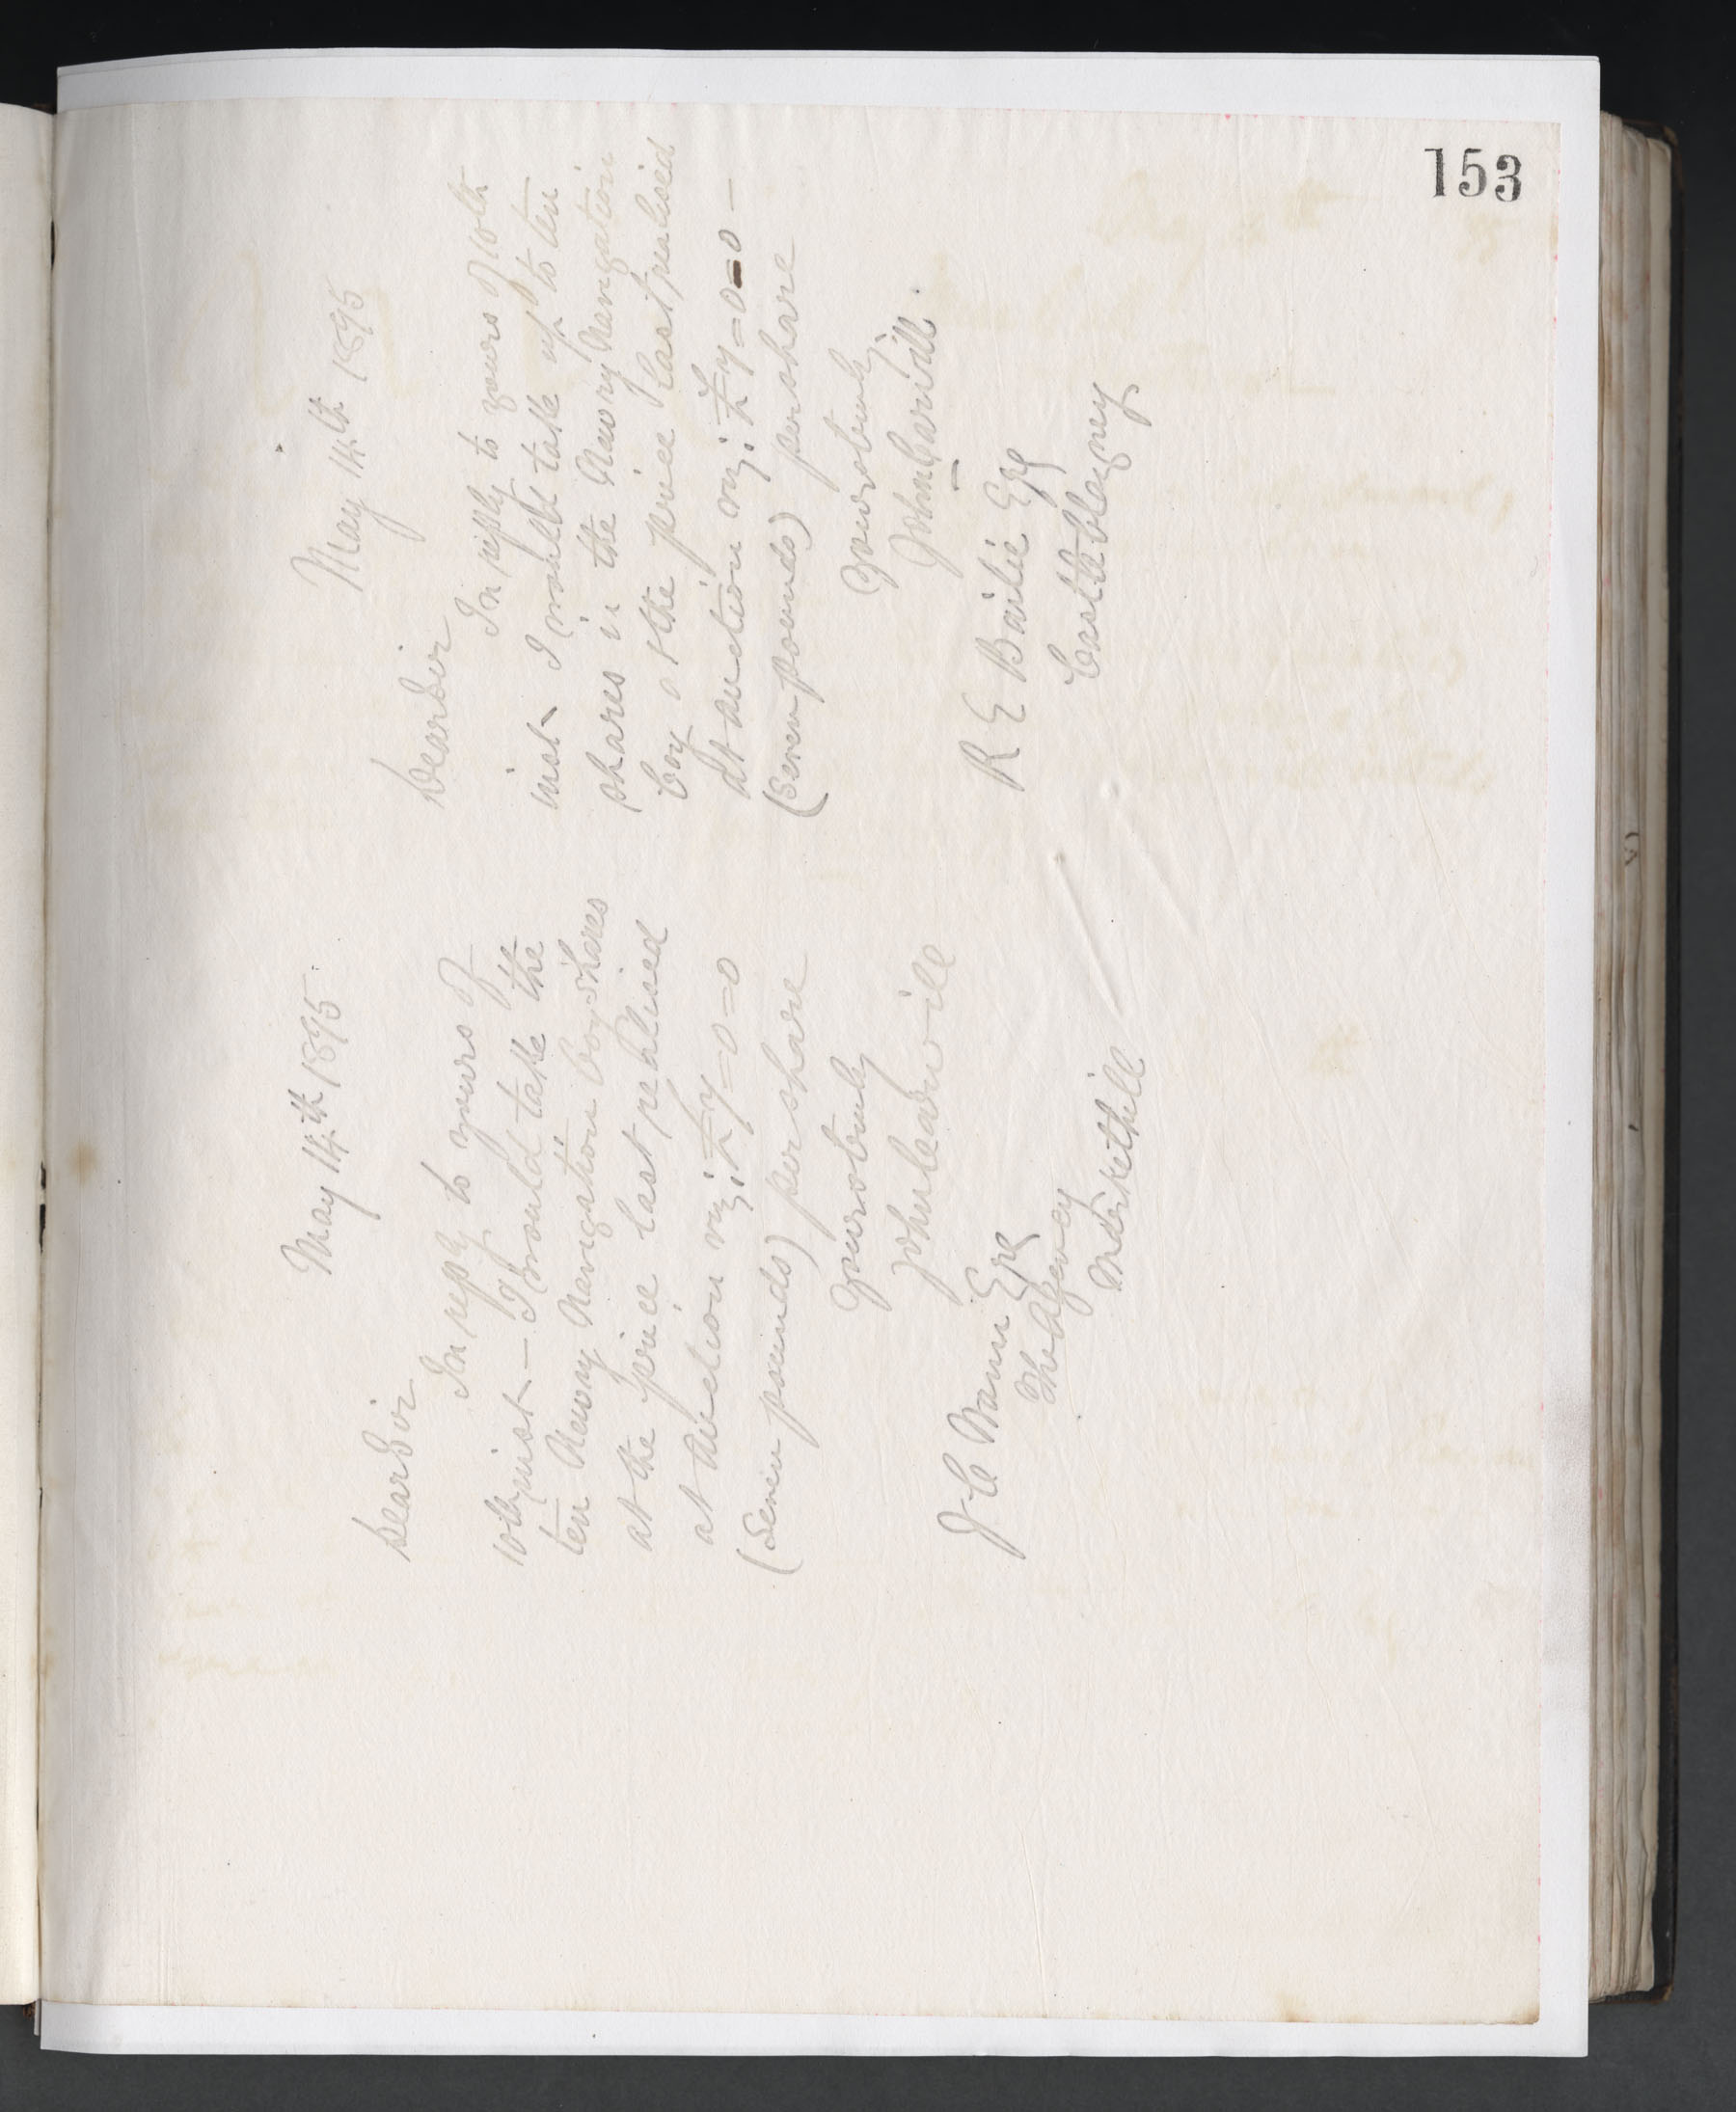 153
May 14th 1895
Dear Sir
In reply to yours of
10th inst — I would take the
ten Newry Navigation Coy shares
at the price last realised
at auction viz; £7=0=0
(Seven pounds) per share
yours truly
John
J C Wann Esq
The Agency
Markethill
May 14th 1895
Dear Sir
In reply to yours of 10th
inst I would take up to ten
shares in the Newry Navigation
Coy at the price last realised
at auction viz; £7=0=0 —
(Seven pounds) per share
yours truly
John
R E Bailie Esq
Castleblayney